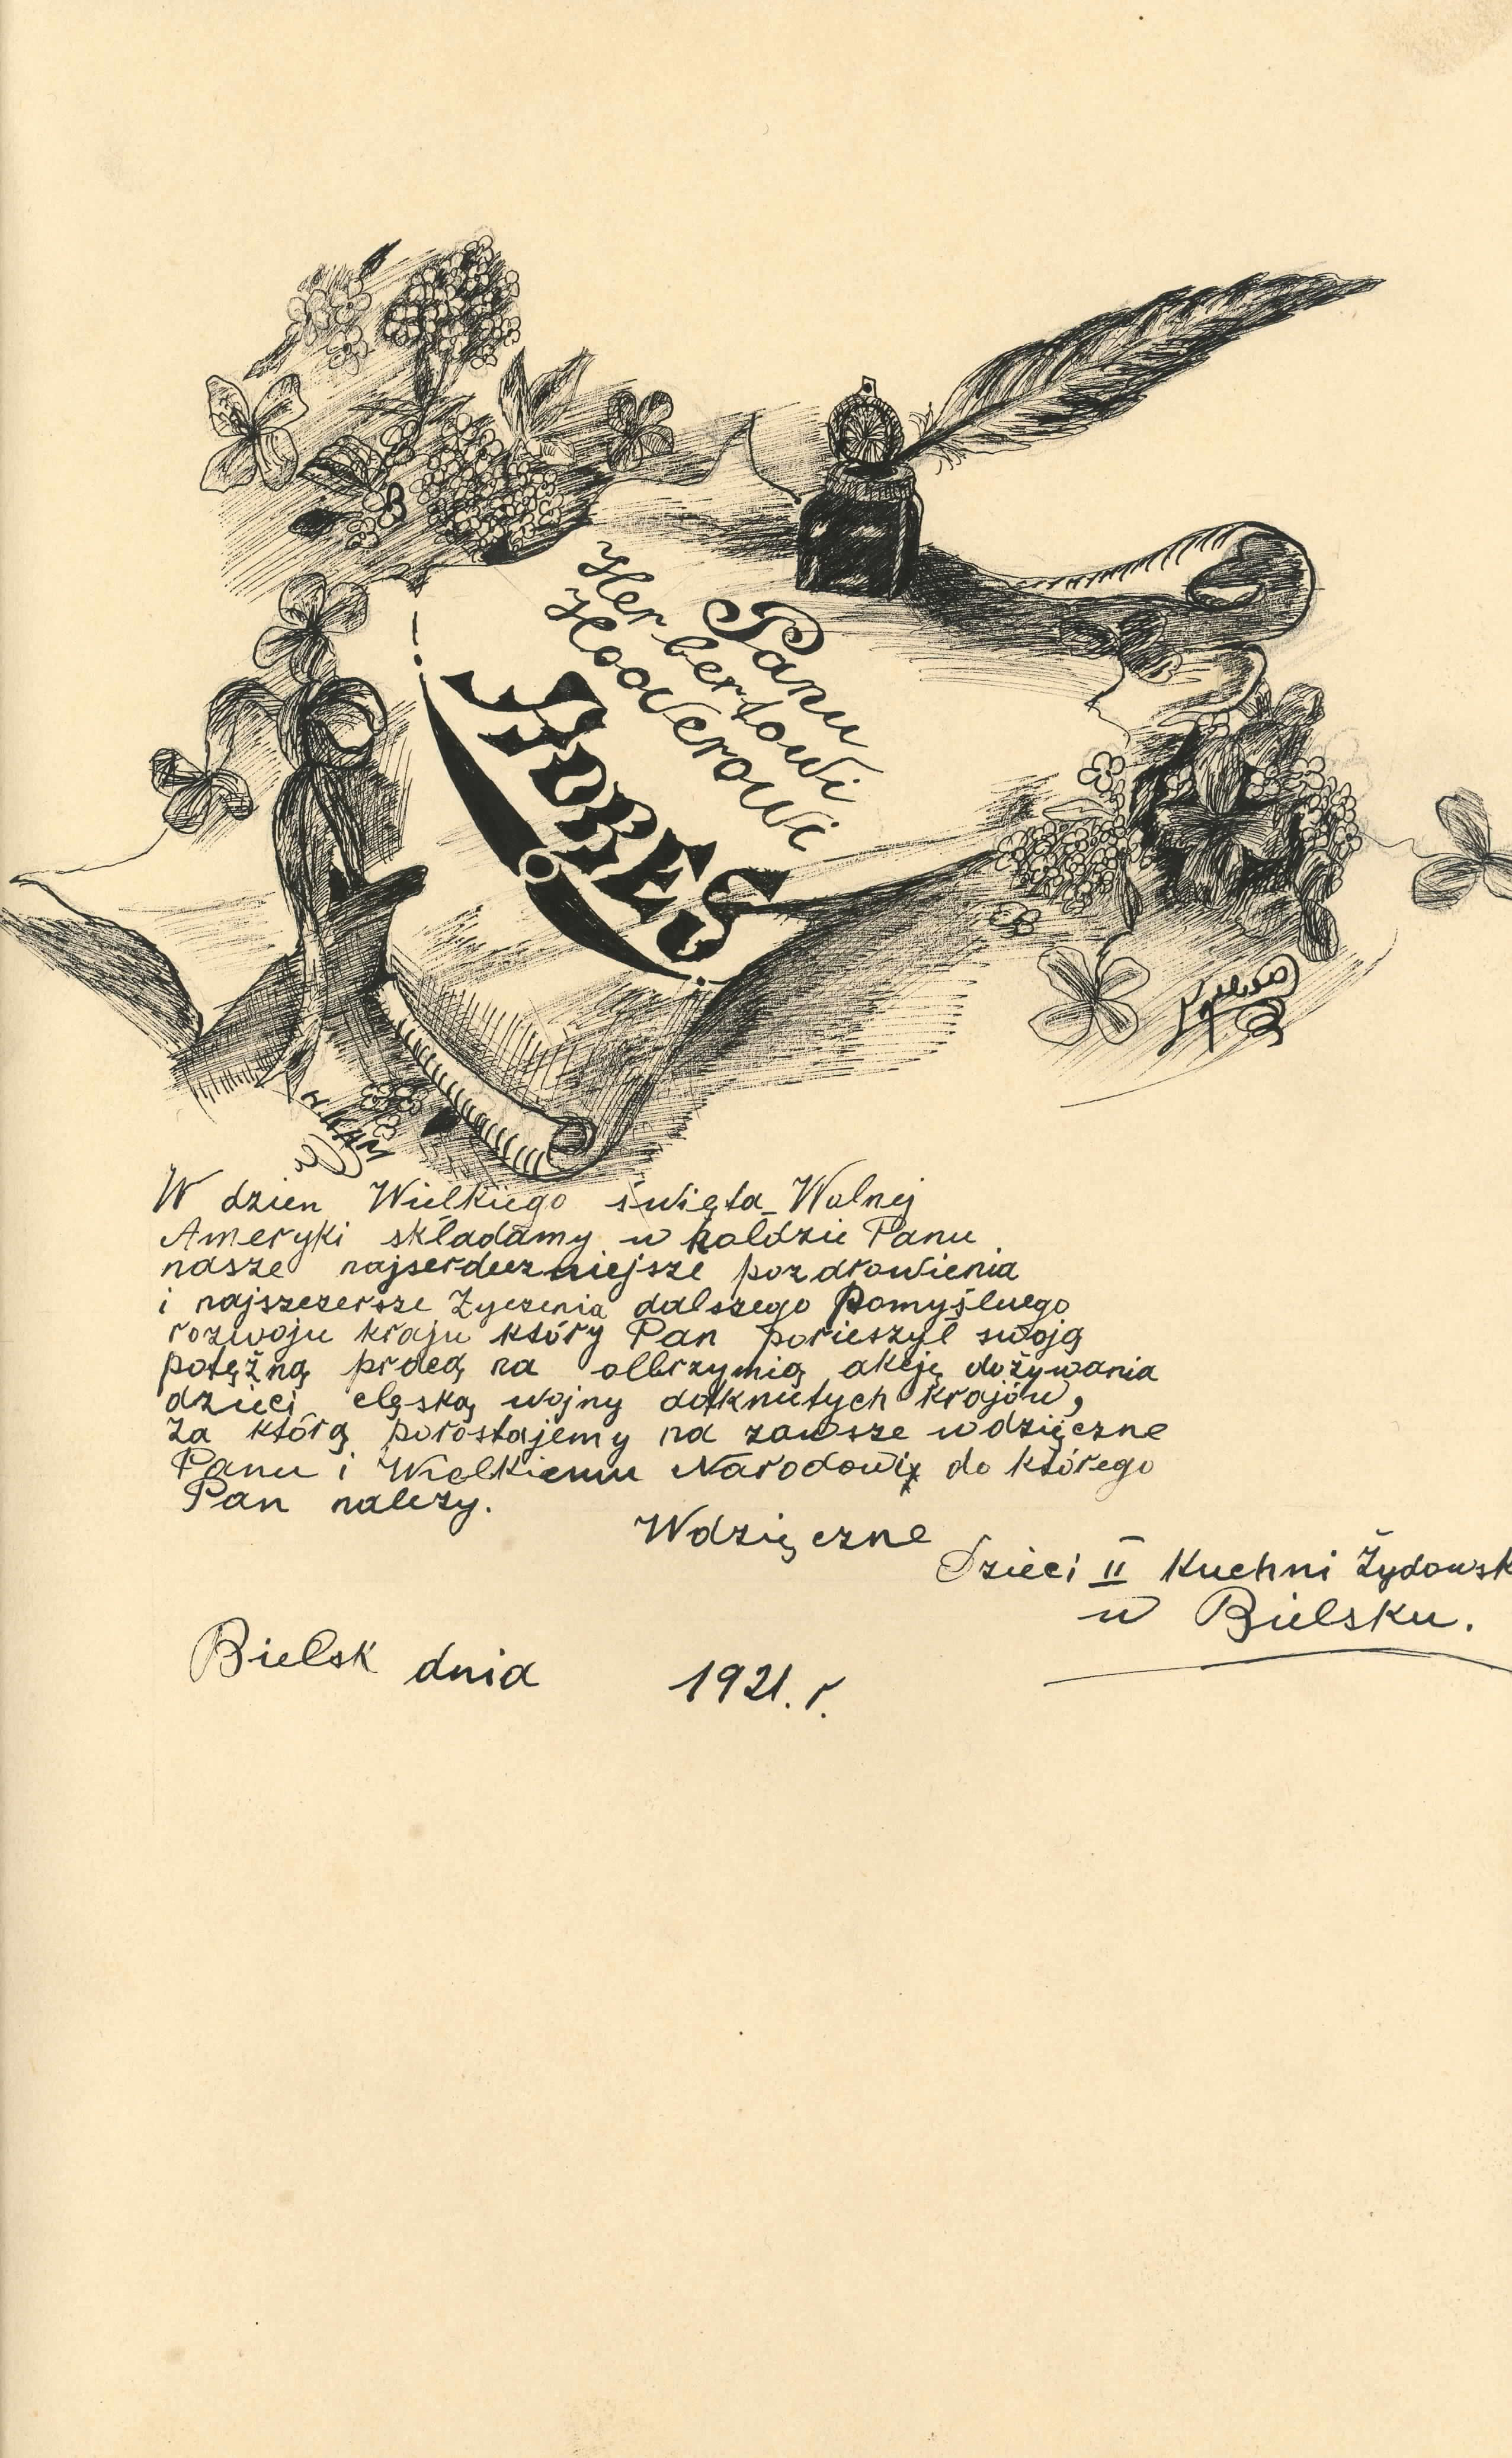 Panu
Herbertowi
Hooverowi
ADRES
W dzien Wielkiego święta Wolnej
Ameryki składamy w hołdzie Panu
nasze najserdeczniejsze pozdrowienia
i najszczersze życzenia dalszego pomyślnego
rozwoju kraju który Pan porieszył swoją
potężną pracą na olbrzymią akcję dożywania
dzieci clęską wojny dotkniętych krajów,
za którą porostajemy na zawsze wdzięczne
Panu i Wielkiemu Narodowi do którego
Pan należy.
Wdzięczne
Dzieci II Kuchni Żydowsk
w Bielsku.
Bielsk dnia 1921. r.